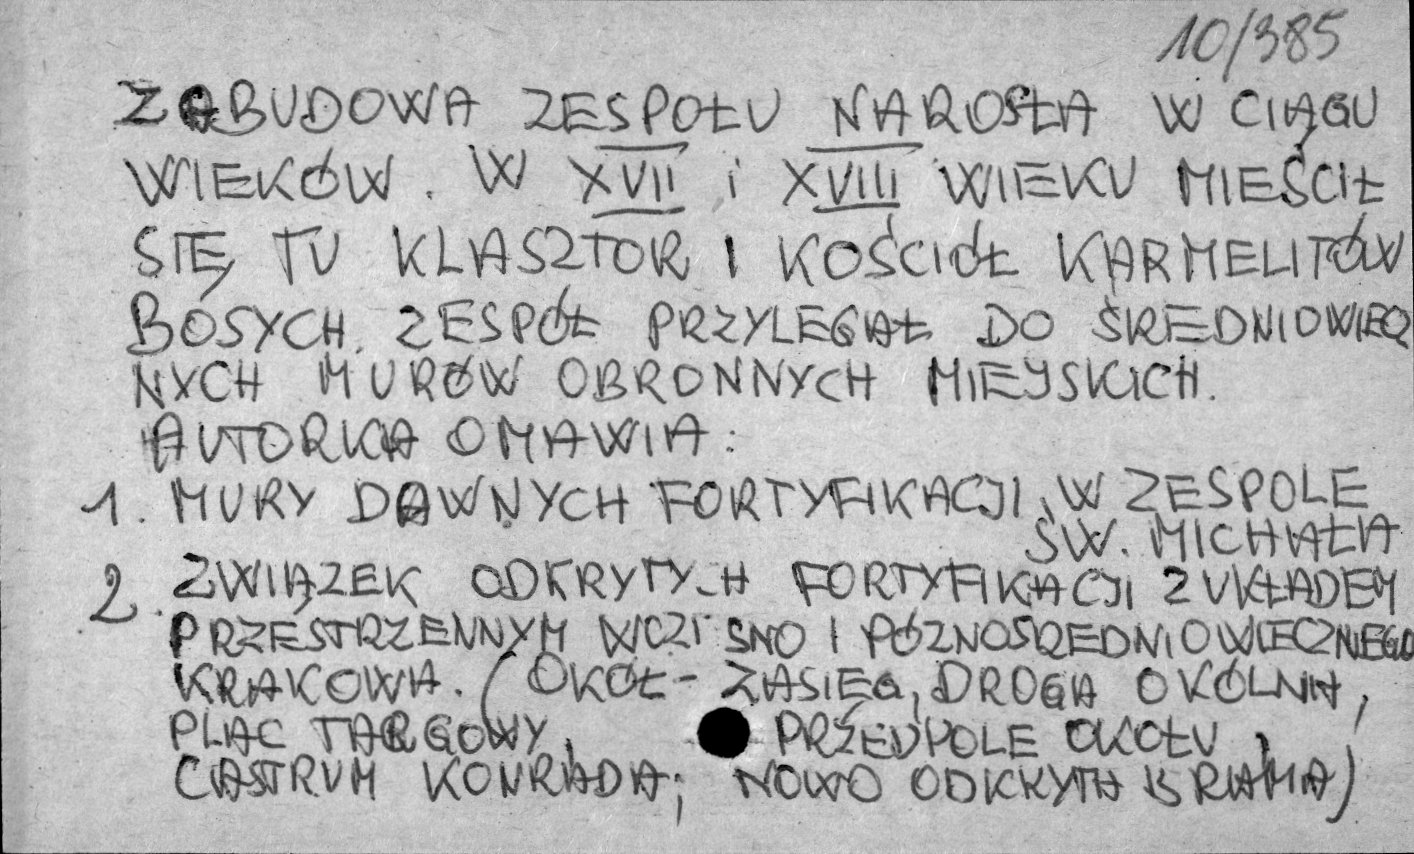 10/385
ZABUDOWA ZESPOŁU NAROSŁA W CIĄGU
WIEKÓW. W XVII i XVIII WIEKU MIEŚCIŁ
SIĘ TU KLASZTOR I KOŚCIÓŁ KARMELITÓW
BOSYCH. ZESPÓŁ PRZYLEGAŁ DO ŚREDNIOWIECZ
NYCH MURÓW OBRONNYCH MIEJSKICH.
AUTORKA OMAWIA:
1. MURY DAWNYCH FORTYFIKACJI W ZESPOLE
ŚW. MICHAŁA
2. ZWIĄZEK ODKRYTYCH FORTYFIKACJI Z UKŁADEM
PRZESTRZENNYM WCZESNO I PÓŹNOŚREDNIOWIECZNEGO
KRAKOWA. (OKÓŁ - ZASIĘG, DROGA OKÓLNA,
PLAC TARGOWY, PRZEDPOLE OKOŁU,
CASTRUM KONRADA; NOWO ODKRYTA BRAMA)